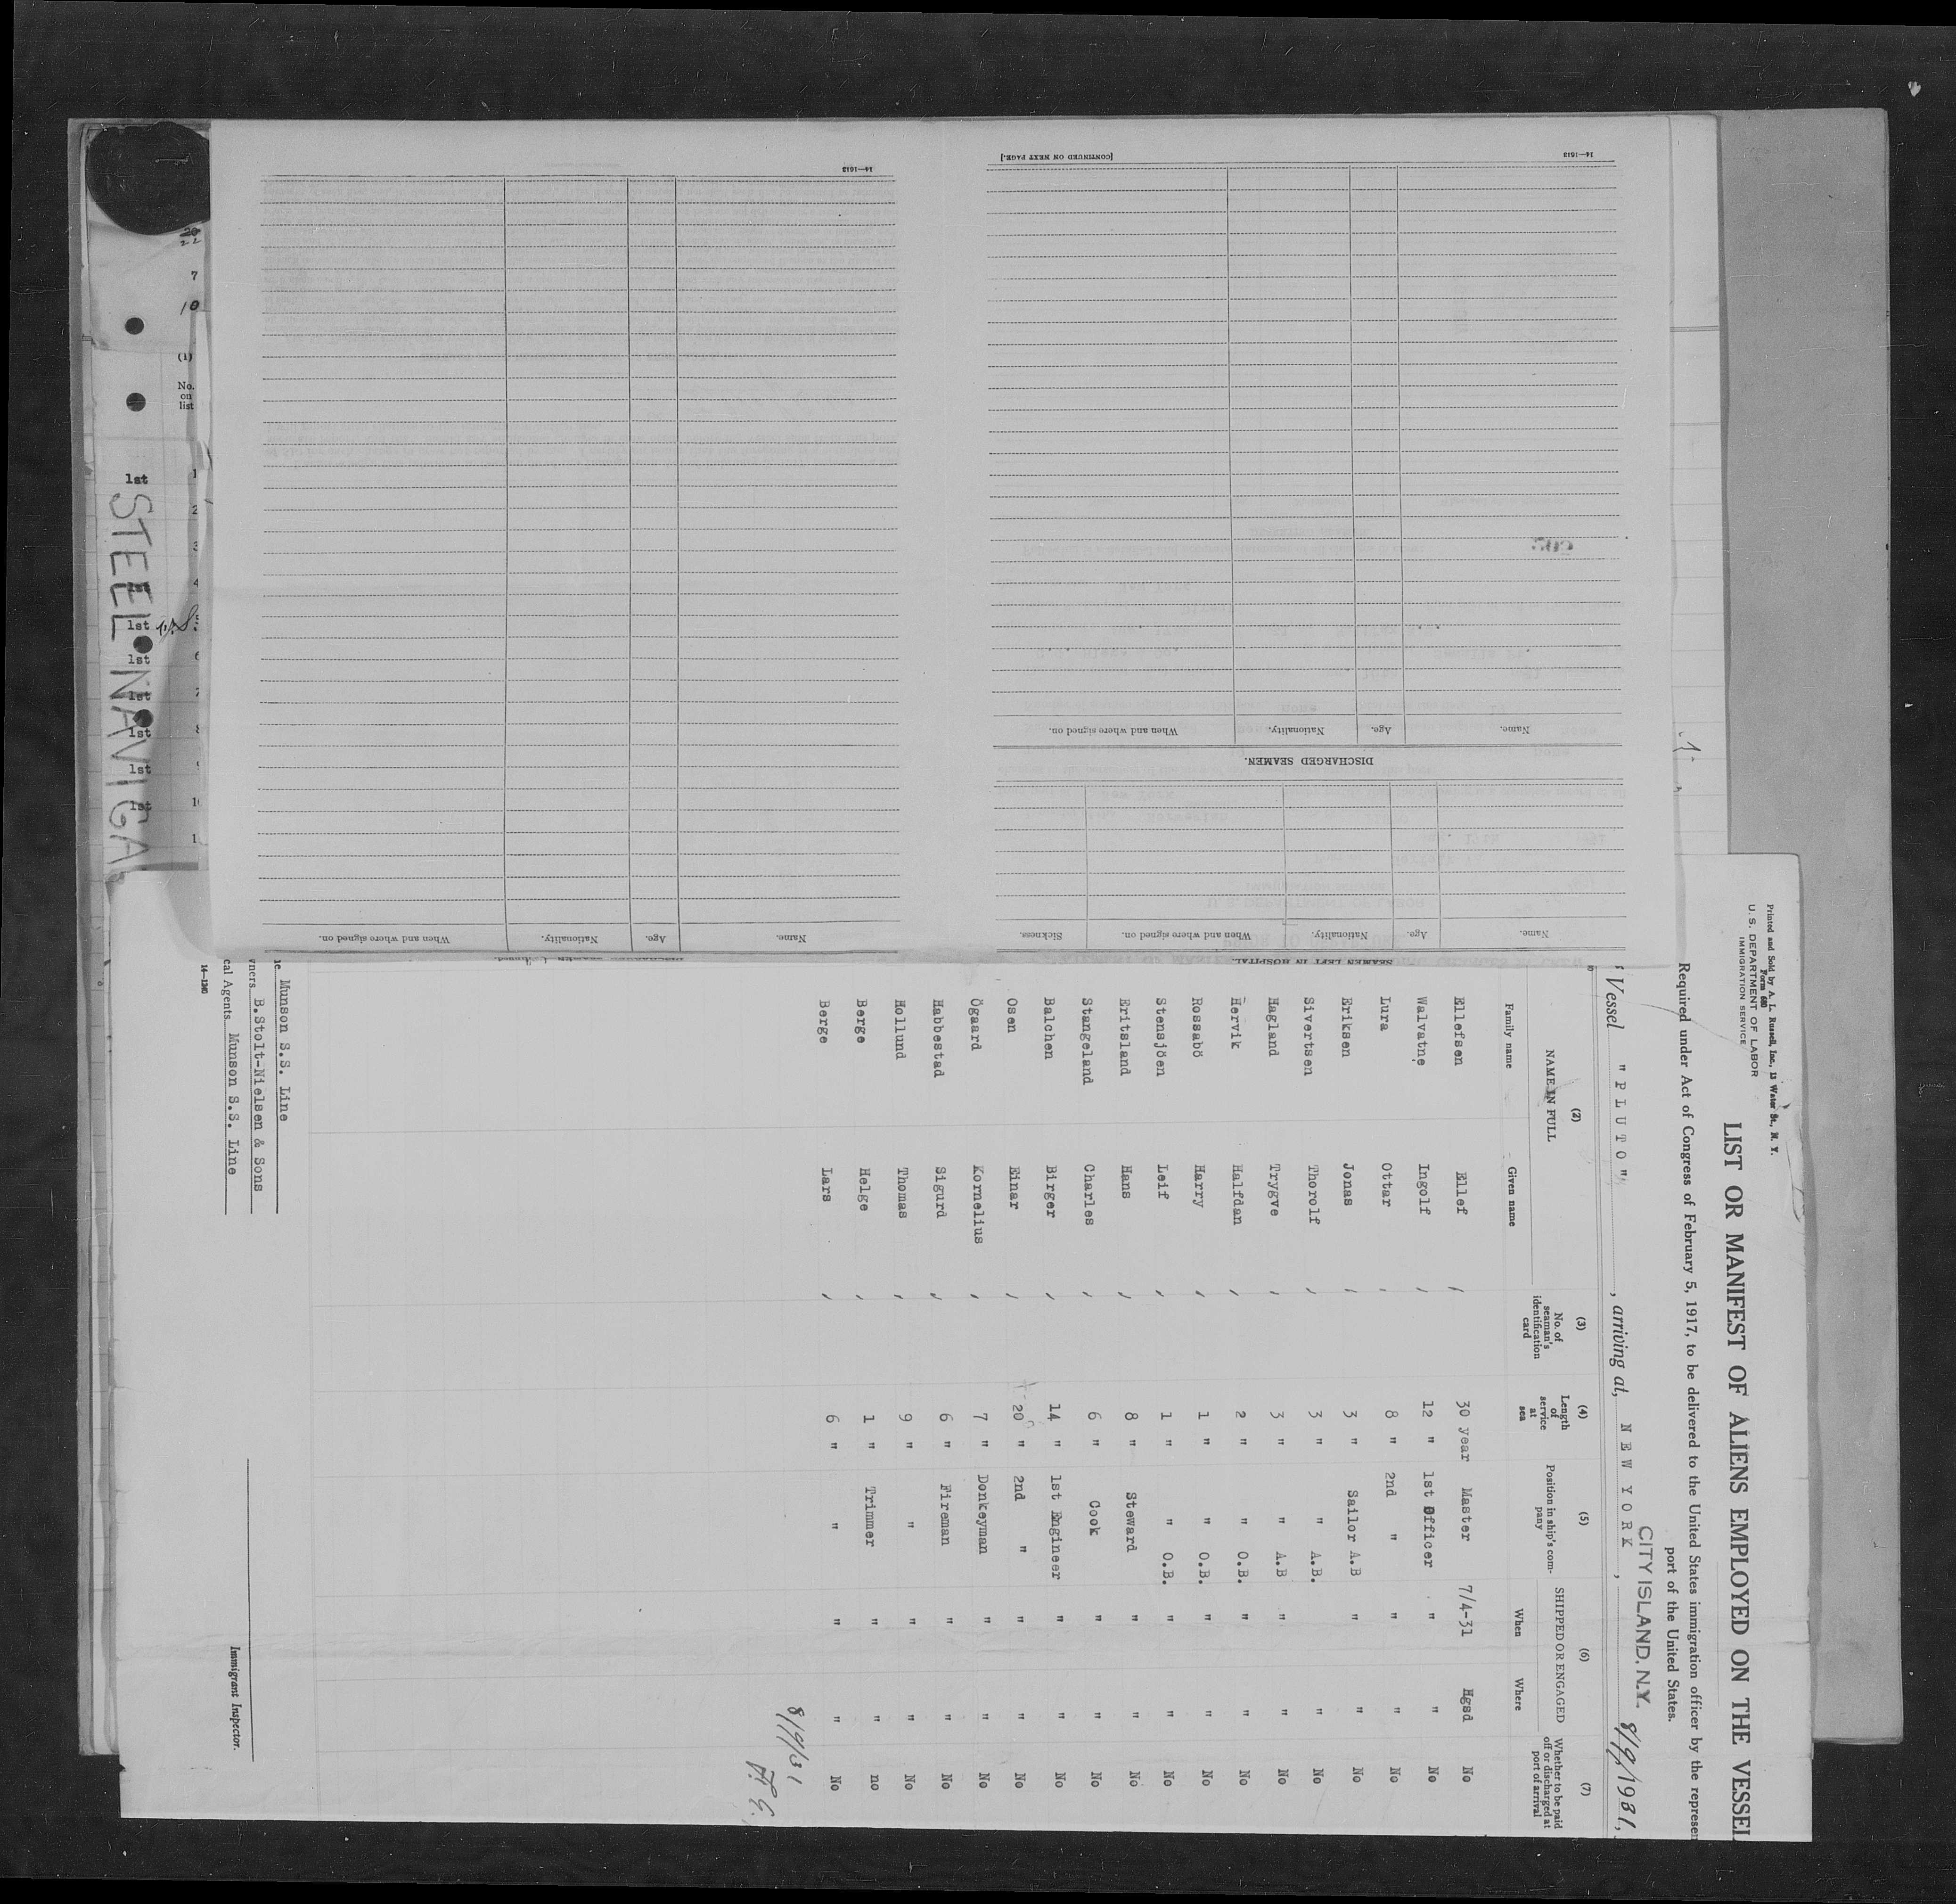 Printed and Sold by A. L. Russell, Inc., 13 Water St., N. Y.
Form 680
U. S. DEPARTMENT OF LABOR
IMMIGRATION SERVICE
LIST OR MANIFEST OF ALIENS EMPLOYED ON THE VESSEL
Required under Act of Congress of February 5, 1917, to be delivered to the United States immigration officer by the represen
port of the United States.
CITY ISLAND, N.Y.
Vessel "PLUTO", arriving at, NEW YORK, 8/9/1931,
(2) (3) (4) (5) (6) (7)
NAME IN FULL
Family name Given name
No. of seaman's identification card
Length of service at sea
Position in ship's company
SHIPPED OR ENGAGED
When Where
Whether to be paid off or discharged at port of arrival
Ellefsen Ellef 30 year Master 7/4-31 Hgsd No
Walvatne Ingolf 12 " 1st Officer " " No
Lura Ottar 8 " 2nd " " " No
Eriksen Jonas 3 " Sailor A.B " " No
Sivertsen Thorolf 3 " " A.B. " No
Hagland Trygve 3 " " A.B " " No
Hervik Halfdan 2 " " O.B. " " No
Rossabö Harry 1 " " O.B. " " No
Stensjöen Leif 1 " " O.B. " " No
Eritsland Hans 8 " Steward " " No
Stangeland Charles 6 " Cook " " No
Balchen Birger 14 " 1st Engineer " " No
Osen Einar 20 " 2nd " " " No
Ögaard Kornelius 7 " Donkeyman " " No
Habbestad Sigurd 6 " Fireman " " No
Hollund Thomas 9 " " " " No
Berge Helge 1 " Trimmer " " no
Berge Lars 6 " " " " No
8/9/31
Munson S.S. Line
wners B.Stolt-Nielsen & Sons
cal Agents Munson S.S. Line
Immigrant Inspector.
14-1240
SEAMEN LEFT IN HOSPITAL.
Name. Age. Nationality. When and where signed on. Sickness.
DISCHARGED SEAMEN.
Name. Age. Nationality. When and where signed on.
[CONTINUED ON NEXT PAGE.]
14-1613
Name. Age. Nationality. When and where signed on.
14-1613
20
22
7
10
(1)
No.
on
list
1st 1
2
3
4
1st
1st
1st 7
1st
1st
1st
STEEL NAVIGA